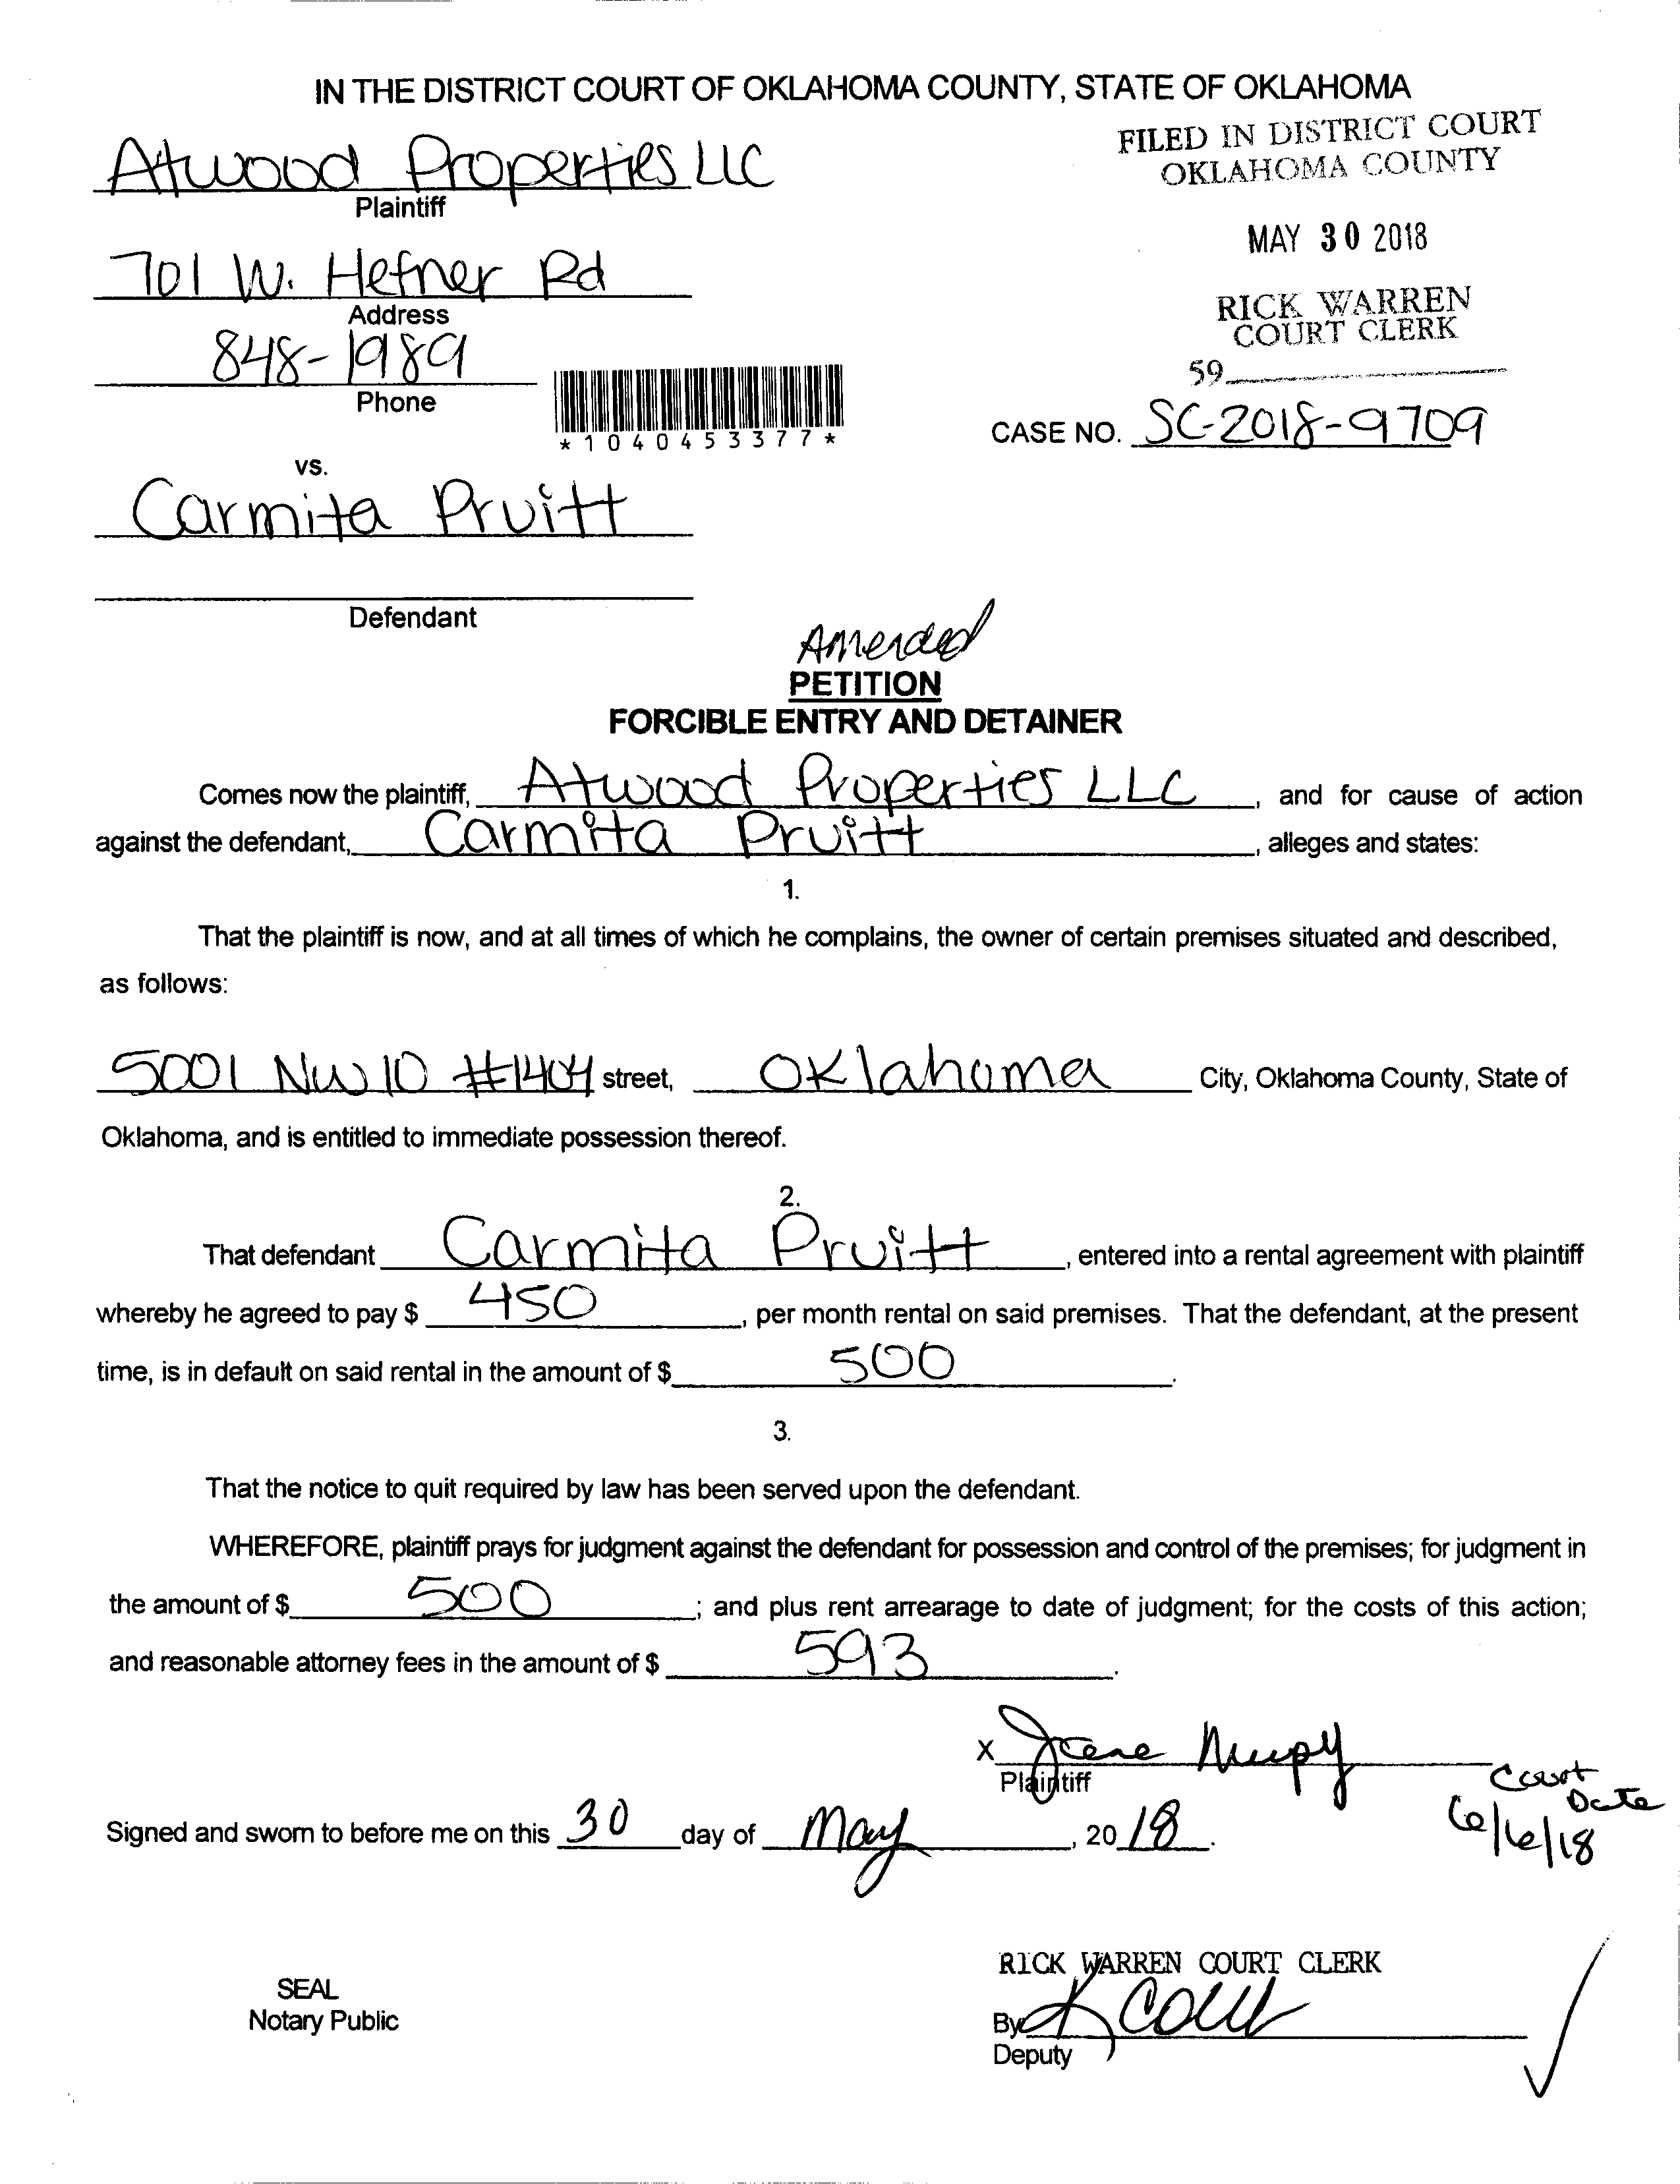 IN THE DISTRICT COURT OF OKLAHOMA COUNTY, STATE OF OKLAHOMA
FILED IN DISTRICT COURT
OKLAHOMA COUNTY
Atwood Properties LLC
Plaintiff
MAY 30 2018
701 W. Hefner Rd
Address
RICK WARREN
COURT CLERK
848-1989
Phone
59
*1040453377*
CASE NO. SC-2018-9709
vs.
Carmita Pruitt
Defendant
Amended
PETITION
FORCIBLE ENTRY AND DETAINER
Comes now the plaintiff, Atwood Properties LLC, and for cause of action
against the defendant, Carmita Pruitt, alleges and states:
1.
That the plaintiff is now, and at all times of which he complains, the owner of certain premises situated and described,
as follows:
5001 NW 10 #1404 street, Oklahoma City, Oklahoma County, State of
Oklahoma, and is entitled to immediate possession thereof.
2.
That defendant Carmita Pruitt, entered into a rental agreement with plaintiff
whereby he agreed to pay $ 450, per month rental on said premises. That the defendant, at the present
time, is in default on said rental in the amount of $ 500.
3.
That the notice to quit required by law has been served upon the defendant.
WHEREFORE, plaintiff prays for judgment against the defendant for possession and control of the premises; for judgment in
the amount of $ 500; and plus rent arrearage to date of judgment; for the costs of this action;
and reasonable attorney fees in the amount of $ 593.
X
Plaintiff
Court
Date
6/6/18
Signed and sworn to before me on this 30 day of May, 20 18.
RICK WARREN COURT CLERK
SEAL
Notary Public
By
Deputy